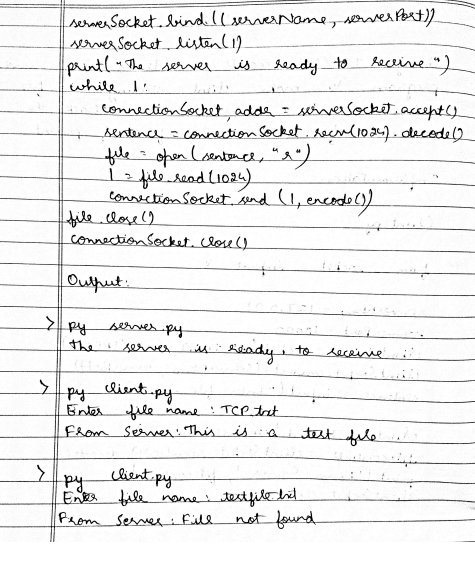 serverSocket.bind((serverName, serverPort))
serverSocket.listen(1)
print("The server is ready to receive")
while 1:
connectionSocket, addr = serverSocket.accept()
sentence = connectionSocket.recv(1024).decode()
file = open(sentence, "r")
l = file.read(1024)
connectionSocket.send(l.encode())
file.close()
connectionSocket.close()
Output:
> py server.py
The server is ready to receive
> py client.py
Enter file name : TCP.txt
From Server: This is a test file
> py client.py
Enter file name : testfile.txt
From Server : File not found